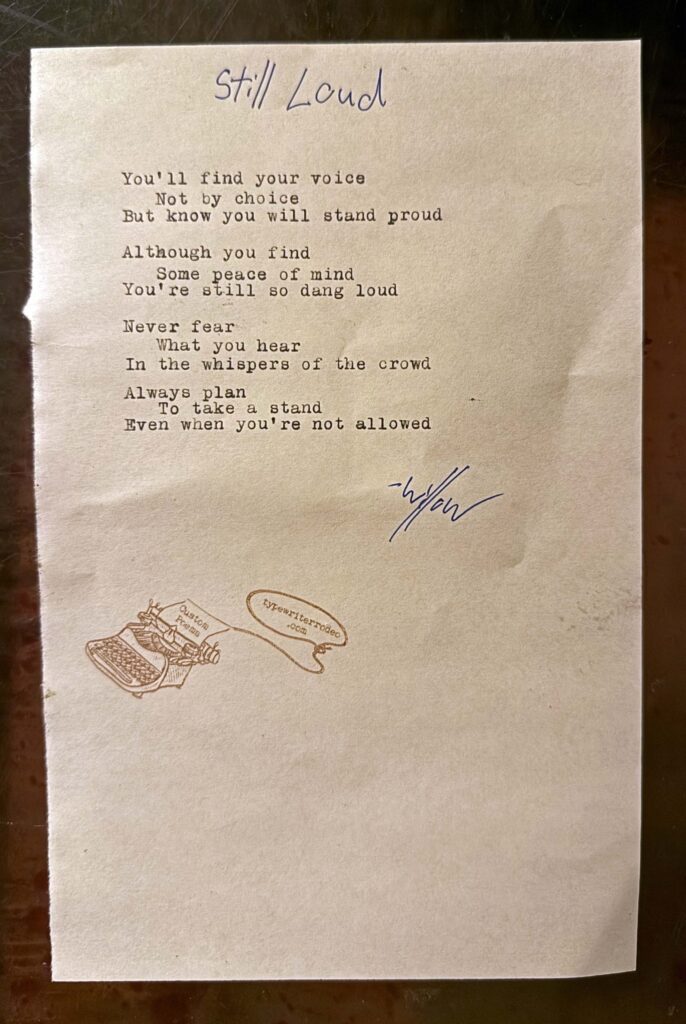 Still Loud
You'll find your voice
Not by choice
But know you will stand proud
Although you find
Some peace of mind
You're still so dang loud
Never fear
What you hear
In the whispers of the crowd
Always plan
To take a stand
Even when you're not allowed
-Willow
Custom
Poems
typewriterrodeo
.com